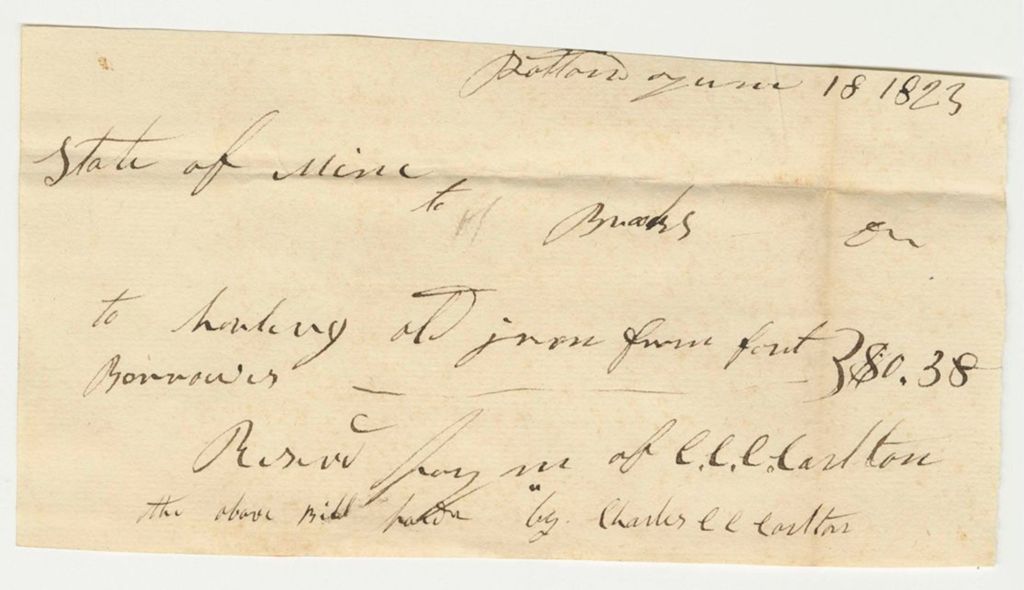 Portland June 18 1823
State of Mine
to Brooks Dr
to hauling old jron from fort } $0.38
Borrowes
Reseved pay m of C.C.C. Carlton
the above Bill by Charles C C Carlton